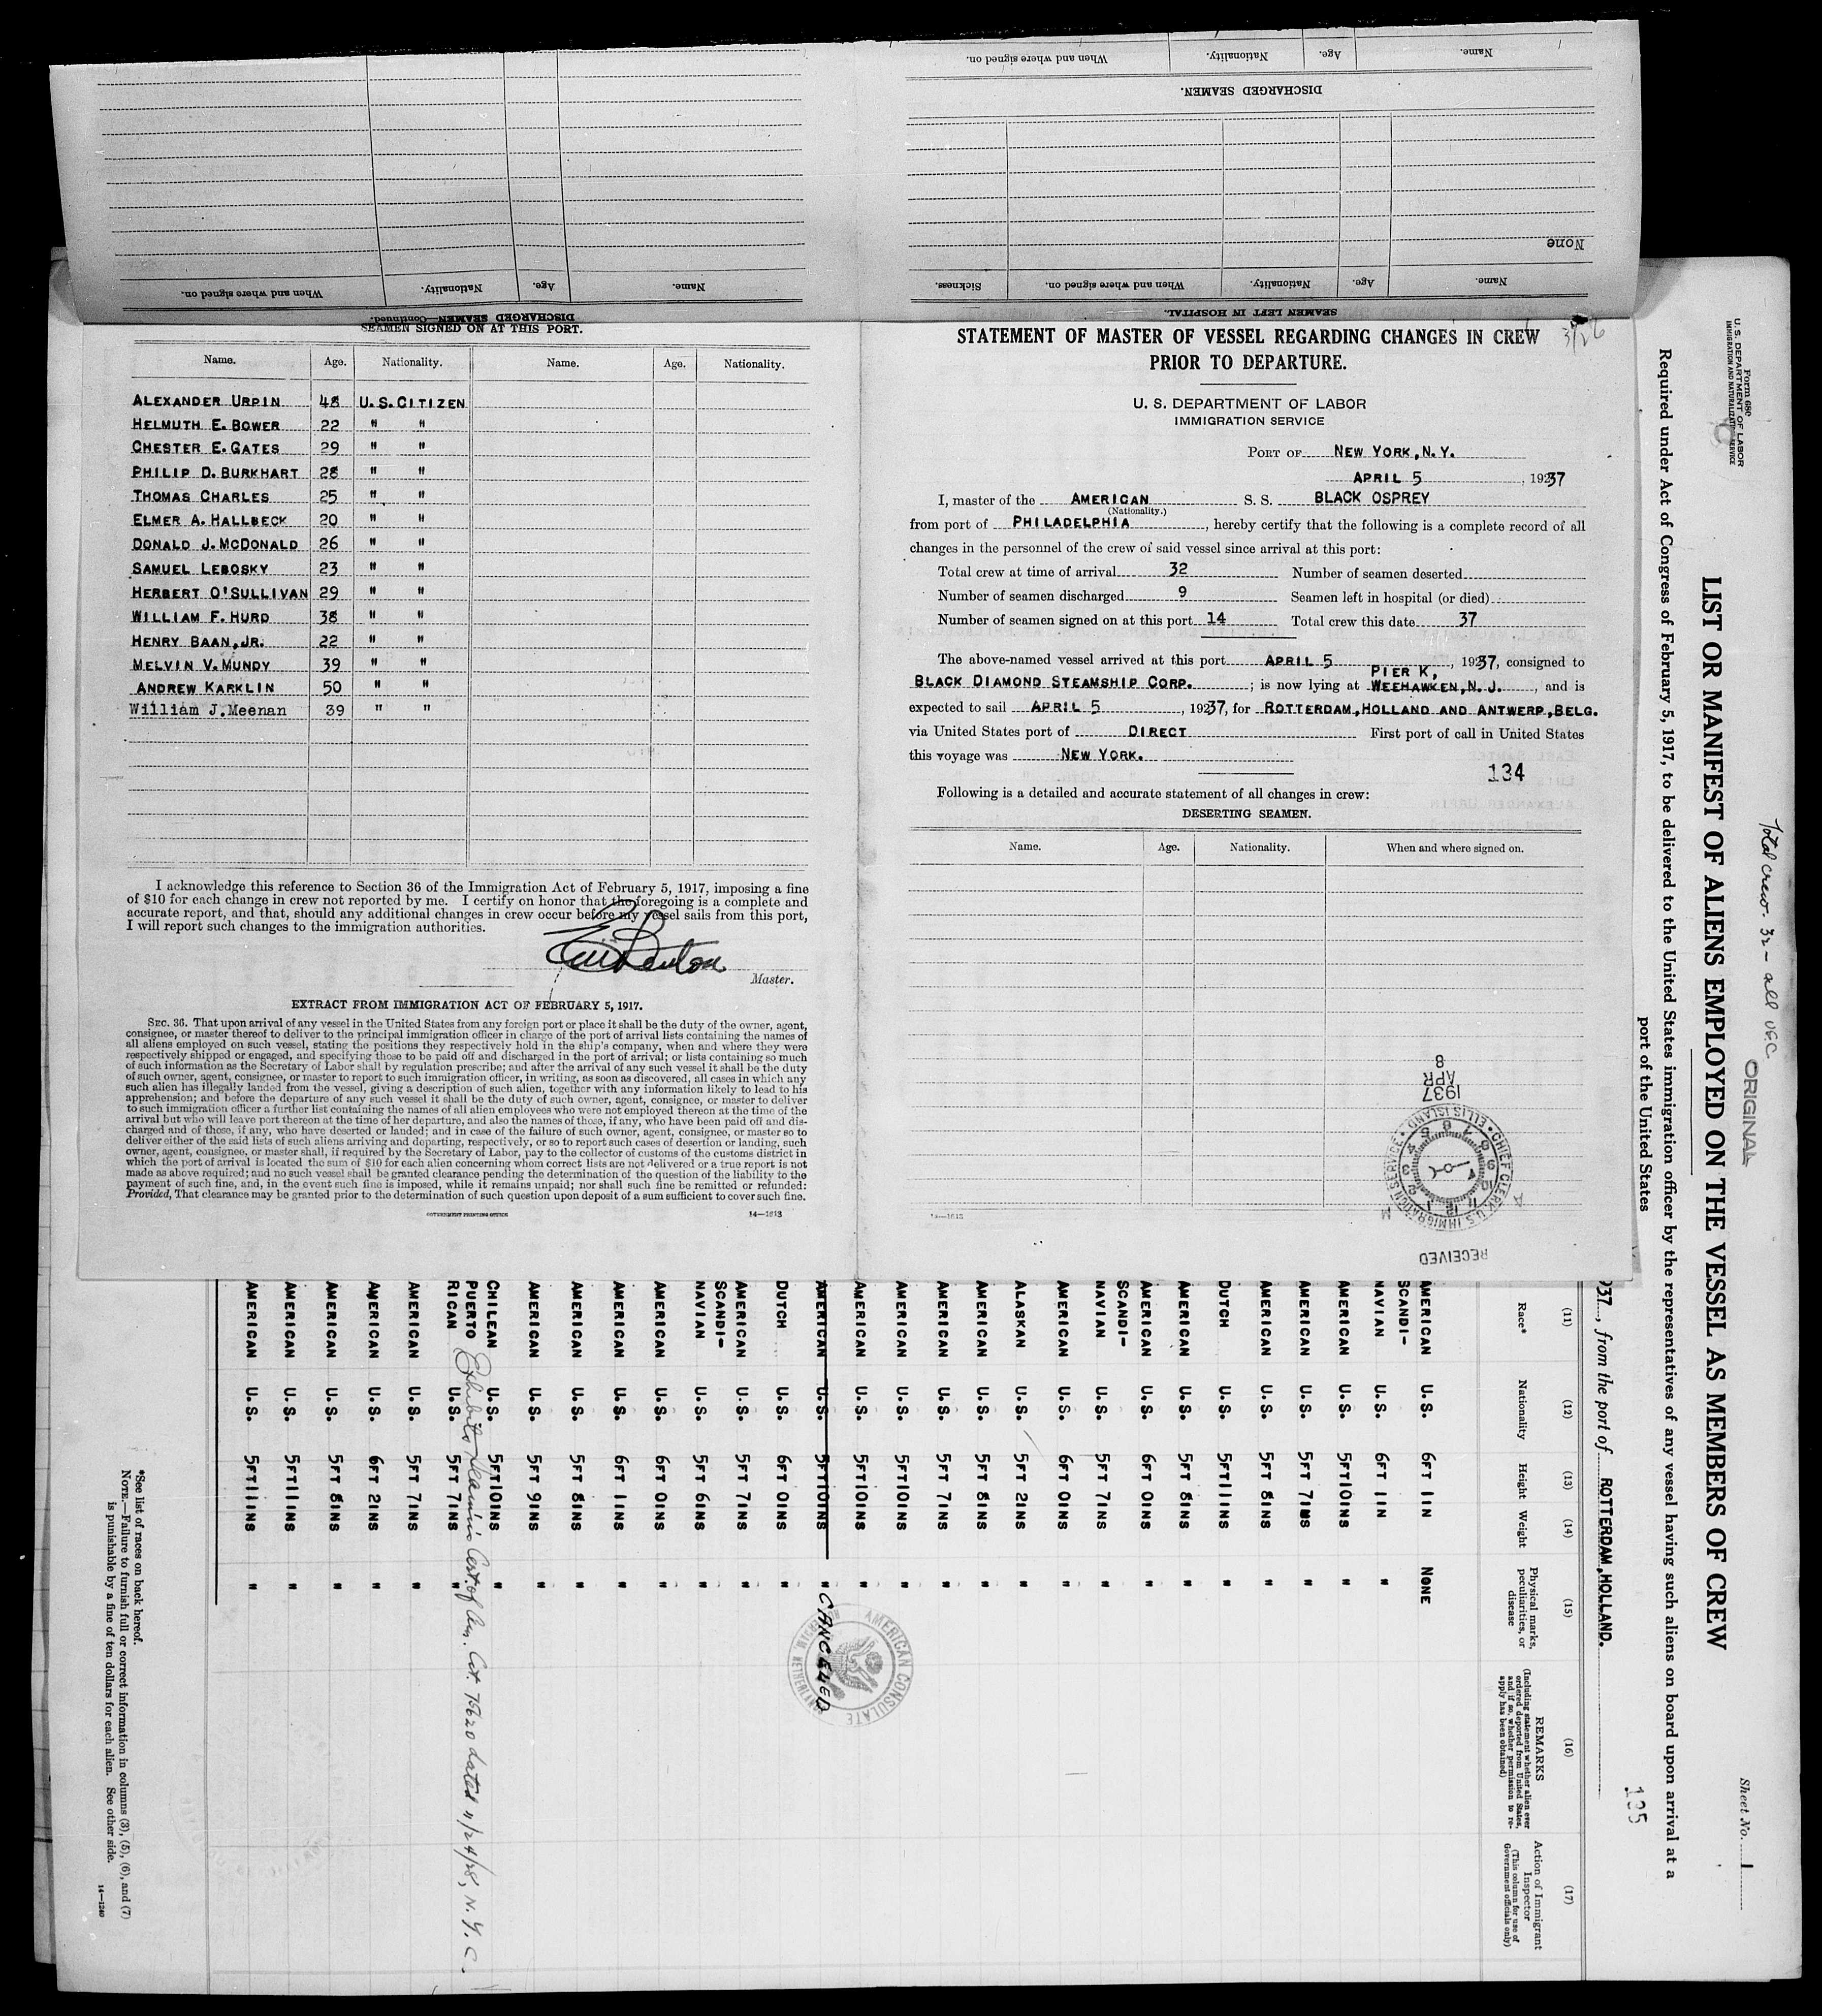 When and where signed on. Nationality. Age. Name.
DISCHARGED SEAMEN.
None
When and where signed on. Nationality. Age. Name.
Sickness. When and where signed on. Nationality. Age. Name.
DISCHARGED SEAMEN—Continued.
SEAMEN LEFT IN HOSPITAL.
SEAMEN SIGNED ON AT THIS PORT.
Name. Age. Nationality. Name. Age. Nationality.
ALEXANDER URPIN 48 U.S.CITIZEN
HELMUTH E. BOWER 22 " "
CHESTER E. GATES 29 " "
PHILIP D. BURKHART 28 " "
THOMAS CHARLES 25 " "
ELMER A. HALLBECK 20 " "
DONALD J. MCDONALD 26 " "
SAMUEL LEBOSKY 23 " "
HERBERT O'SULLIVAN 29 " "
WILLIAM F. HURD 38 " "
HENRY BAAN, JR. 22 " "
MELVIN V. MUNDY 39 " "
ANDREW KARKLIN 50 " "
William J. Meenan 39 " "
I acknowledge this reference to Section 36 of the Immigration Act of February 5, 1917, imposing a fine
of $10 for each change in crew not reported by me. I certify on honor that the foregoing is a complete and
accurate report, and that, should any additional changes in crew occur before my vessel sails from this port,
I will report such changes to the immigration authorities.
Master.
EXTRACT FROM IMMIGRATION ACT OF FEBRUARY 5, 1917.
SEC. 36. That upon arrival of any vessel in the United States from any foreign port or place it shall be the duty of the owner, agent,
consignee, or master thereof to deliver to the principal immigration officer in charge of the port of arrival lists containing the names of
all aliens employed on such vessel, stating the positions they respectively hold in the ship's company, when and where they were
respectively shipped or engaged, and specifying those to be paid off and discharged in the port of arrival; or lists containing so much
of such information as the Secretary of Labor shall by regulation prescribe; and after the arrival of any such vessel it shall be the duty
of such owner, agent, consignee, or master to report to such immigration officer, in writing, as soon as discovered, all cases in which any
such alien has illegally landed from the vessel, giving a description of such alien, together with any information likely to lead to his
apprehension; and before the departure of any such vessel it shall be the duty of such owner, agent, consignee, or master to deliver
to such immigration officer a further list containing the names of all alien employees who were not employed thereon at the time of the
arrival but who will leave port thereon at the time of her departure, and also the names of those, if any, who have been paid off and dis-
charged and of those, if any, who have deserted or landed; and in case of the failure of such owner, agent, consignee, or master so to
deliver either of the said lists of such aliens arriving and departing, respectively, or so to report such cases of desertion or landing, such
owner, agent, consignee, or master shall, if required by the Secretary of Labor, pay to the collector of customs of the customs district in
which the port of arrival is located the sum of $10 for each alien concerning whom correct lists are not delivered or a true report is not
made as above required; and no such vessel shall be granted clearance pending the determination of the question of the liability to the
payment of such fine, and, in the event such fine is imposed, while it remains unpaid; nor shall such fine be remitted or refunded:
Provided, That clearance may be granted prior to the determination of such question upon deposit of a sum sufficient to cover such fine.
GOVERNMENT PRINTING OFFICE 14—1613
STATEMENT OF MASTER OF VESSEL REGARDING CHANGES IN CREW
PRIOR TO DEPARTURE.
U. S. DEPARTMENT OF LABOR
IMMIGRATION SERVICE
PORT OF NEW YORK, N.Y.
APRIL 5, 1937
I, master of the AMERICAN S. S. BLACK OSPREY
(Nationality.)
from port of PHILADELPHIA, hereby certify that the following is a complete record of all
changes in the personnel of the crew of said vessel since arrival at this port:
Total crew at time of arrival 32 Number of seamen deserted
Number of seamen discharged 9 Seamen left in hospital (or died)
Number of seamen signed on at this port 14 Total crew this date 37
The above-named vessel arrived at this port APRIL 5, 1937, consigned to
PIER K,
BLACK DIAMOND STEAMSHIP CORP.; is now lying at WEEHAWKEN, N. J., and is
expected to sail APRIL 5, 1937, for ROTTERDAM, HOLLAND AND ANTWERP, BELG.
via United States port of DIRECT First port of call in United States
this voyage was NEW YORK.
134
Following is a detailed and accurate statement of all changes in crew:
DESERTING SEAMEN.
Name. Age. Nationality. When and where signed on.
1937 APR 8
CHIEF CLERK U.S. IMMIGRATION SERVICE • ELLIS ISLAND •
RECEIVED
14—1613
Total crew. 32 - all USC
ORIGINAL
Sheet No. 1
Form 680
U. S. DEPARTMENT OF LABOR
IMMIGRATION AND NATURALIZATION SERVICE
LIST OR MANIFEST OF ALIENS EMPLOYED ON THE VESSEL AS MEMBERS OF CREW
Required under Act of Congress of February 5, 1917, to be delivered to the United States immigration officer by the representatives of any vessel having such aliens on board upon arrival at a
port of the United States
195
937, from the port of ROTTERDAM, HOLLAND.
(11) (12) (13) (14) (15) (16) (17)
Race* Nationality Height Weight Physical marks, peculiarities, or disease REMARKS (Including statement whether alien ever ordered deported from United States, and if so, whether permission to reapply has been obtained) Action of Immigrant Inspector (This column for use of Government officials only)
AMERICAN U.S. 6FT 1IN NONE
SCANDI-
NAVIAN U.S. 6FT 1IN "
AMERICAN U.S. 5FT10INS "
AMERICAN U.S. 5FT 7INS "
AMERICAN U.S. 5FT 8INS "
DUTCH U.S. 5FT11INS "
AMERICAN U.S. 5FT 8INS "
AMERICAN U.S. 6FT 0INS "
SCANDI-
NAVIAN U.S. 5FT 7INS "
AMERICAN U.S. 6FT 0INS "
ALASKAN U.S. 5FT 2INS "
AMERICAN U.S. 5FT 8INS "
AMERICAN U.S. 5FT 7INS "
AMERICAN U.S. 5FT10INS "
AMERICAN U.S. 5FT10INS "
AMERICAN U.S. 5FT10INS " CANCELLED
AMERICAN CONSULATE
DUTCH U.S. 6FT 0INS "
AMERICAN U.S. 5FT 7INS "
SCANDI-
NAVIAN U.S. 5FT 6INS "
AMERICAN U.S. 6FT 0INS "
AMERICAN U.S. 6FT 1INS "
AMERICAN U.S. 5FT 8INS "
AMERICAN U.S. 5FT 9INS "
CHILEAN U.S. 5FT10INS "
PUERTO
RICAN U.S. 5FT 7INS "
Exhibits Seaman's Cert. of Am. Cit. 75620 dated 11/24/28, N.Y.C.
AMERICAN U.S. 5FT 7INS "
AMERICAN U.S. 6FT 2INS "
AMERICAN U.S. 5FT 8INS "
AMERICAN U.S. 5FT11INS "
AMERICAN U.S. 5FT11INS "
*See list of races on back hereof.
NOTE.—Failure to furnish full or correct information in columns (3), (5), (6), and (7)
is punishable by a fine of ten dollars for each alien. See other side.
14—1240